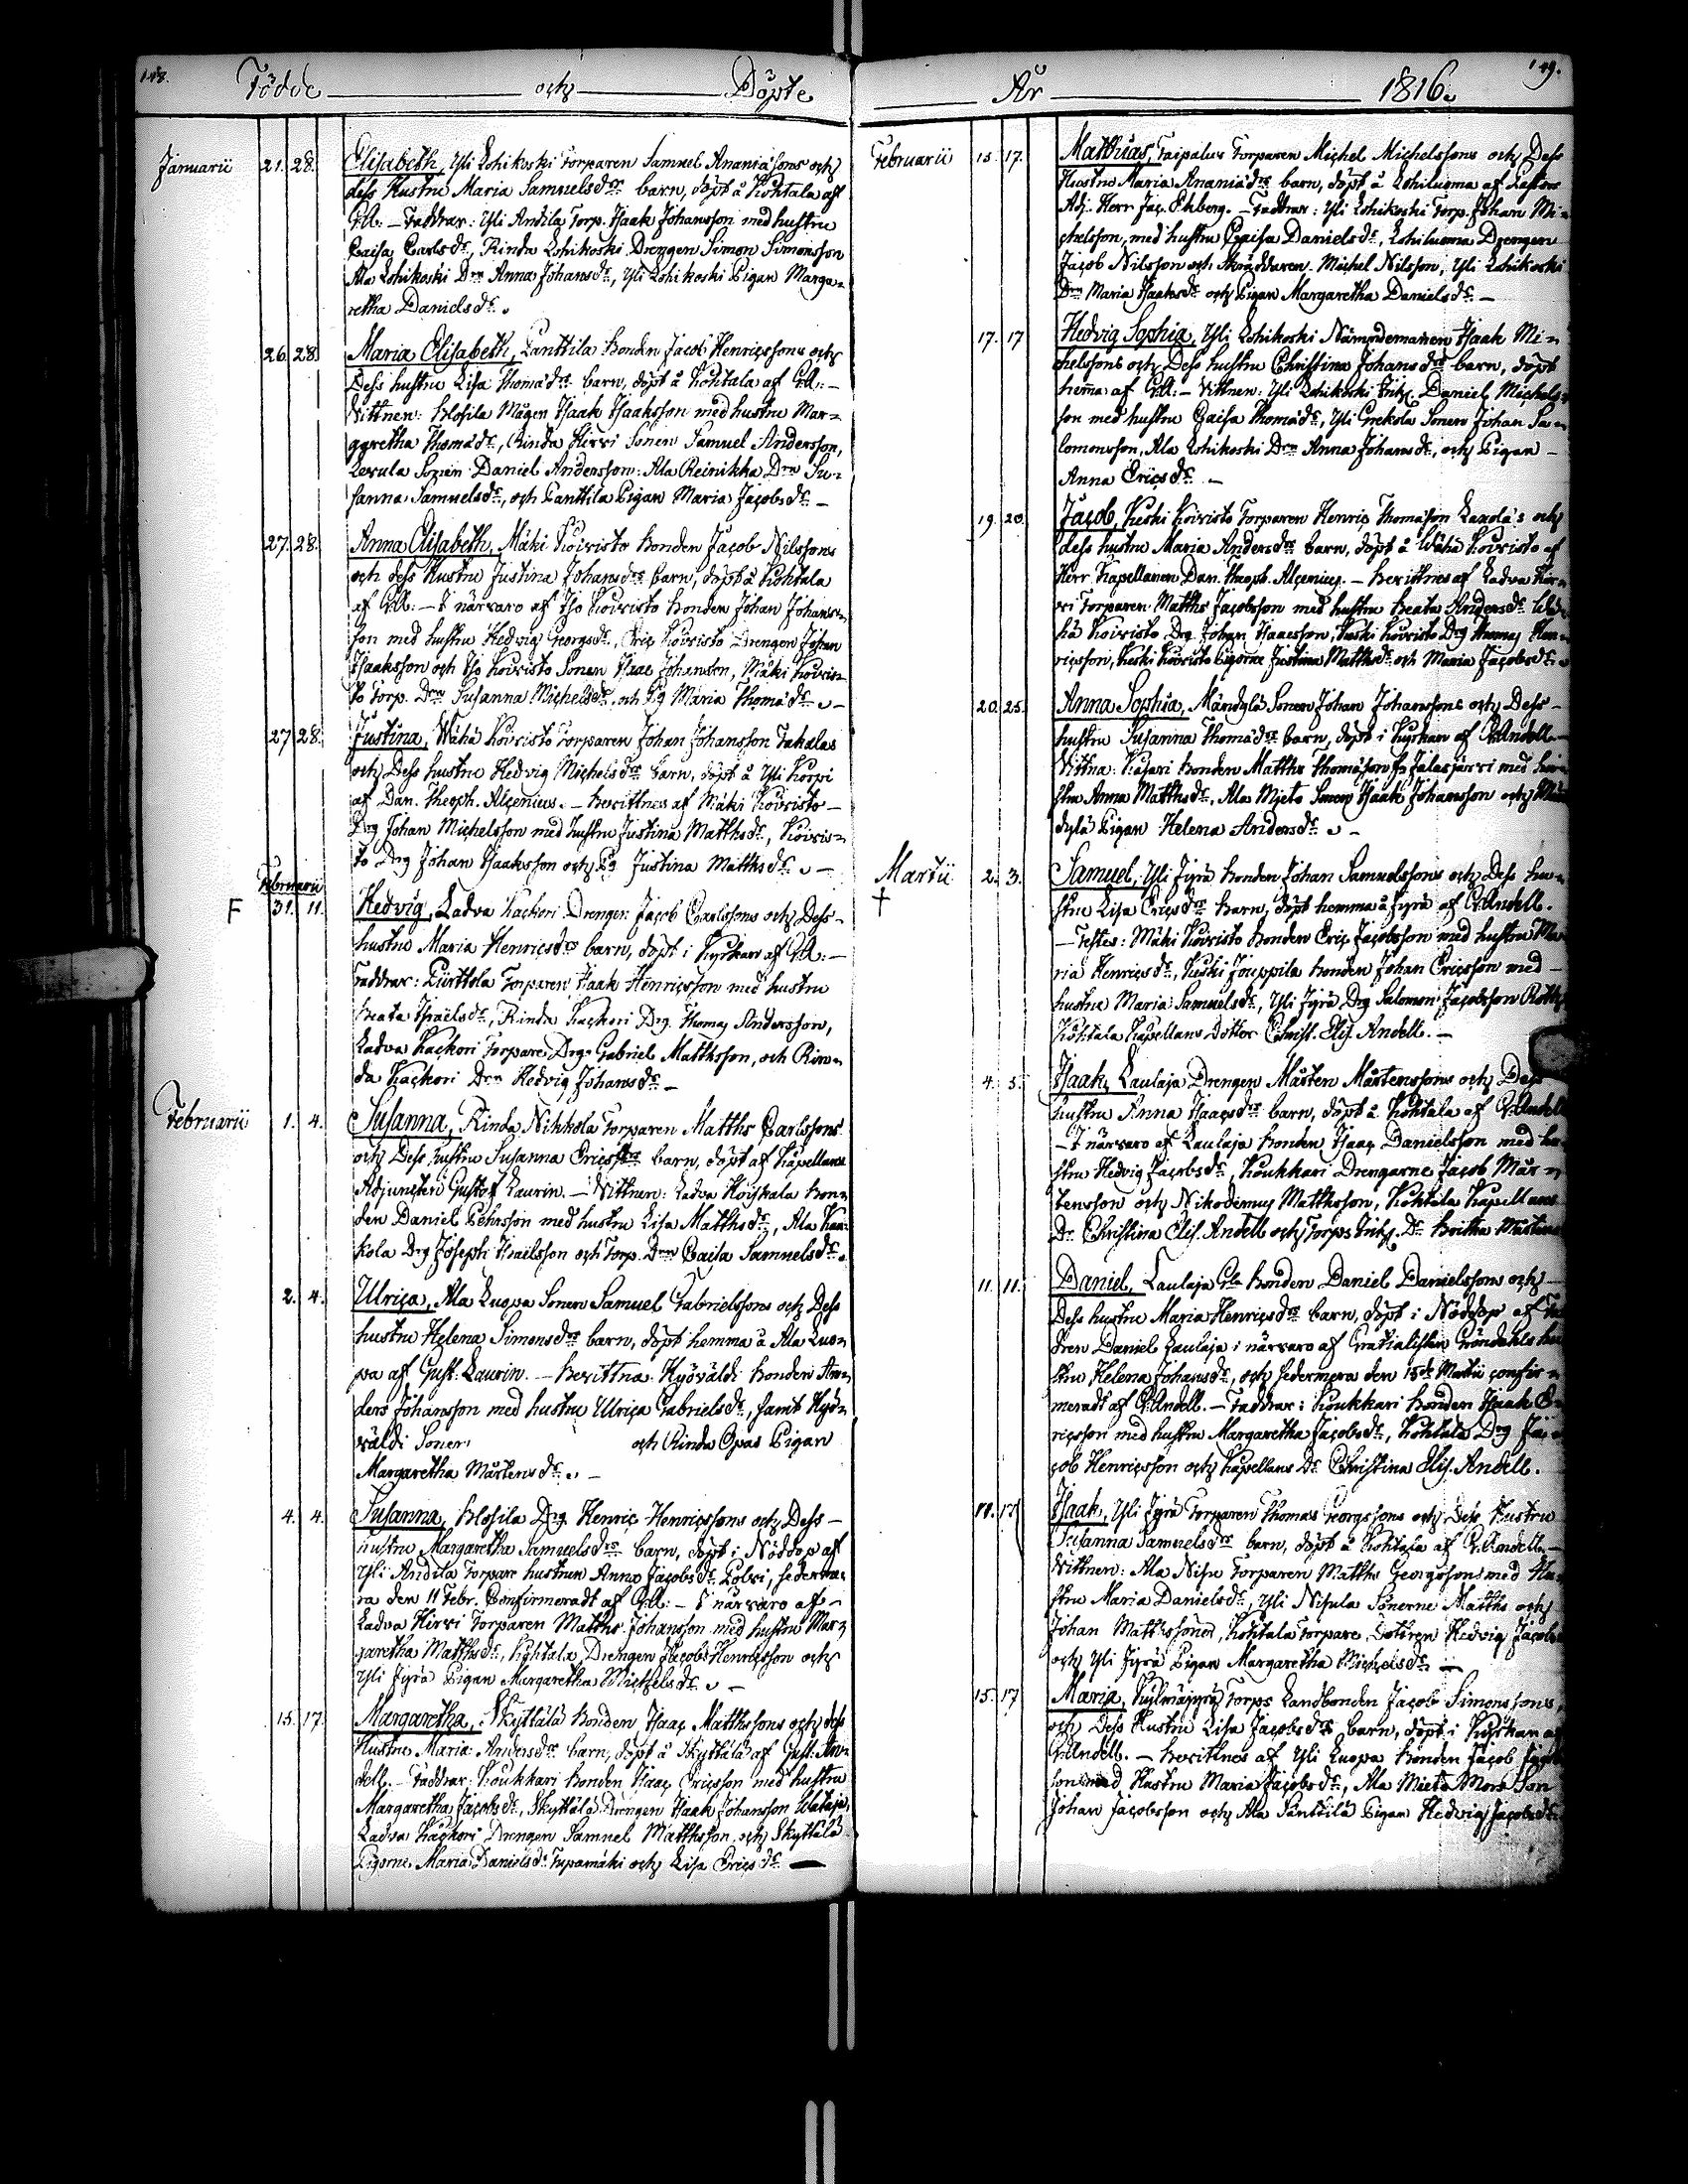 148.
Födde och Döpte
Januarii 21. 28. Elisabeth, Yli Lohikoski Torparen Samuel Ananiæsons och
dess Hustru Maria Samuelsdrs barn, döpt å Kohtala af
GA: – Faddrar: Yli Andila Torp. Isaak Johansson med hustru
Caisa Carlsdr, Rinda Lohikoski Drengen Simon Simonsson
Ala Lohikoski Drn Anna Johansdr, Yli Lohikoski Pigan Marga-
retha Danielsdr.
26. 28. Maria Elisabeth, Panttila Bonden Jacob Henricssons och
Dess hustru Lisa Thomædrs barn, döpt å Kohtala af GA: –
Vittnen: Blosila Mågen Isaak Isaaksson med hustru Mar-
garetha Thomædr, Rinda Hirvi Sonen Samuel Andersson,
Daniel Andersson. Ala Reinikka Drn Su-
sanna Samuelsdr, och Panttila Pigan Maria Jacobsdr –
27. 28. Anna Elisabeth, Mäki Koivisto Bonden Jacob Nilssons
och dess Hustru Justina Johansdrs barn, döpt å Kohtala
af GA: – I närvaro af Iso Koivisto Bonden Johan Johans-
son med hustru Hedvig Georgsdr, Eric Koivisto Drengen Johan
Isaaksson och Iso Koivisto Sonen Isaac Johansson, Mäki Koivis-
to Torp. Drn Susanna Michelsdr, och Pg Maria Thomædr –
27 28. Justina, Wähä Koivisto Torparen Johan Johansson Takalas
och Dess hustru Hedvig Michelsdrs barn, döpt å Yli Korpi
af Dan. Theoph. Alcenius. – Bevittnes af Mäki Koivisto –
Drg Johan Michelsson med hustru Justina Matthsdr, Koivis-
to Drg Johan Isaaksson och Pg Justina Matthsdr –
Februarii
F 31. 11. Hedvig, Ladva Kackori Drengen Jacob Carlssons och Dess –
hustru Maria Henricsdrs barn, döpt i Kyrkan af GA: –
Faddrar: Pirttola Torparen Isaak Henricsson med hustru
Beata Israelsdr, Rinda Kackori Drg. Thomas Andersson,
Ladva Kackori Torpare Drg Gabriel Matthsson, och Rin-
da Kackori Drn Hedvig Johansdr –
Februarii 1. 4. Susanna, Rinda Nikkola Torparen Matths Carlssons
och Dess hustru Susanna Ericsdrs barn, döpt af Kapellans
Adjuncten Gustaf Laurin. – Vittnen: Ladva Koiskala Bon-
den Daniel Pehrsson med hustru Lisa Matthsdr, Ala Kau-
kola Drg Joseph Israelsson och Torp. Drn Caisa Samuelsdr.
2. 4. Ulrica, Ala Luopa Sonen Samuel Gabrielssons och Dess
hustru Helena Simonsdrs barn, döpt hemma å Ala Luo-
pa af Gust. Laurin. – Bevittna: Hyöväldi Bonden An-
ders Johansson med hustru Ulrica Gabrielsdr, samt Hyö-
väldi Sonen och Rinda Opas Pigan
Margaretha Mårtensdr. –
4. 4. Susanna, Blosila Drg. Henric Henricssons och Dess –
hustru Margaretha Samuelsdrs barn, döpt i Nöddop af
Yli Andila Torpare hustrun Anna Jacobsdr Polvi, sederme-
ra den 11 Febr. Confirmeradt af GA: – I närvaro af –
Ladva Hirvi Torparen Matths Johansson med hustru Mar-
garetha Matthsdr, Kohtala Drengen Jacob Henricsson och
Yli Jyrä Pigan Margaretha Michelsdr –
15. 17. Margaretha, Skyttälä Bonden Isaac Matthssons och dess
Hustru Maria Andersdrs barn, döpt å Skyttälä af Gust. An-
dell. – Faddrar: Koukkari Bonden Isaac Ericsson med hustru
Margaretha Jacobsdr, Skyttälä Drengen Isaak Johansson Wataja,
Ladva Kackori Drengen Samuel Matthsson och Skyttälä
Pigorne Maria Danielsdr Tupamäki och Lisa Ericsdr –
149.
År 1816.
Februarii 15. 17. Matthias, Taipalus Torparen Michel Michelssons och Dess
Hustru Maria Ananiædrs barn, döpt å Lohiluoma af Pastors
Adj. Herr Jac. Ekberg. – Faddrar: Yli Lohikoski Torp. Johan Mi-
chelsson, med hustru Caisa Danielsdr, Lohiluoma Drengen
Jacob Nilsson och Skräddaren Michel Nilsson, Yli Lohikoski
Drn Maria Isaaksdr och Pigan Margaretha Danielsdr –
17. 17 Hedvig Sophia, Yli Lohikoski Nämndemannen Isaak Mi-
chelssons och Dess hustru Christina Johansdrs barn, döpt
hemma af GA: – Vittnen: Yli Lohikoski Inh. Daniel Michels-
son med hustru Caisa Thomædr, Yli Grekola Sonen Johan Sa-
lomonsson, Ala Lohikoski Drn Anna Johansdr, och Pigan –
Anna Ericsdr –
19. 20. Jacob, Keski Koivisto Torparen Henric Thomæson Laxola's och
dess hustru Maria Andersdrs barn, döpt å Wähä Koivisto af
Herr Kapellanen Dan. Theoph. Alcenius. – Bevittnes af Ladva Hir-
vi Torparen Matths Jacobsson med hustru Beata Andersdr Wä-
hä Koivisto Drg Johan Isaacsson, Keski Koivisto Drg Thomas Hen-
ricsson, Keski Koivisto Pigorne Justina Matthsdr och Maria Jacobsdr
20. 25. Anna Sophia, Mändylä Sonen Johan Johanssons och Dess –
hustru Susanna Thomædrs barn, döpt i Kyrkan af G. Andell –
Vittna: Kasari Bonden Matths Thomæson fr Jalasjärvi med hu-
stru Anna Matthsdr, Ala Mieto Sonen Isaak Johansson och Män-
dylä Pigan Helena Andersdr –
Martii 2. 3. Samuel, Yli Jyrä Bonden Johan Samuelssons och Dess hu-
† stru Lisa Ericsdrs Barn, döpt hemma å Jyrä af G. Andell.
– Testes: Mäki Koivisto Bonden Eric Jacobsson med hustru Ma-
ria Henricsdr, Keski Jouppila Bonden Johan Ericsson med –
hustru Maria Samuelsdr, Yli Jyrä Drg Salomon Jacobsson
Kohtala Kapellans Dotter Christ. Elis. Andell. –
4. 5. Isaak, Laulaja Drengen Mårten Mårtenssons och Dess
hustru Anna Isaacsdrs barn, döpt å Kohtala af G. Andell
– I närvaro af Laulaja Bonden Isaac Danielsson med hu-
stru Hedvig Jacobsdr, Koukkari Drengarne Jacob Mår-
tensson och Nikodemus Matthsson, Kohtala Kapellans
Dr Christina Elis. Andell och Torps Inh. Dr Britha Mårtens
11. 11. Daniel, Laulaja Bonden Daniel Danielssons och
Dess hustru Maria Henricsdrs barn, döpt i Nöddop af Fa-
dren Daniel Laulaja i närvaro af Gratialistan Gröndahls hu-
stru Helena Johansdr, och sedermera den 15de Martii confir-
meradt af G. Andell. – Faddrar: Koukkari Bonden Isaak E-
ricsson med hustru Margaretha Jacobsdr, Kohtala Drg Ja-
cob Henricsson och Kapellans Dr Christina Elis. Andell.
11. 17 Isaak, Yli Jyrä Torparen Thomas Georgssons och Dess Hustru
Susanna Samuelsdrs barn, döpt å Kohtala af G. Andell –
Vittnen: Ala Nisu Torparen Matths Georgsson med Hu-
stru Maria Danielsdr, Yli Nisula Sönerne Matths och
Johan Matthssöner, Kohtala Torpare Dottren Hedvig Jacobs
och Yli Jyrä Pigan Margaretha Michelsdr –
15. 17 Maria, Kylmäjyrä Torps Landbonden Jacob Simonssons,
och Dess Hustru Lisa Jacobsdrs barn, döpt i Kyrkan af
G. Andell. – Bevittnes af Yli Luopa Bonden Jacob
son med Hustru Maria Jacobsdr, Ala Mieto Son
Johan Jacobsson och Ala Panttila Pigan Hedvig Jacobsdr